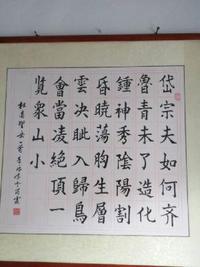 岱宗夫如何齐
魯青未了造化
鍾神秀陰陽割
昏曉蕩胸生層
雲决眦入歸鳥
會當凌絕頂一
覽衆山小
杜甫望